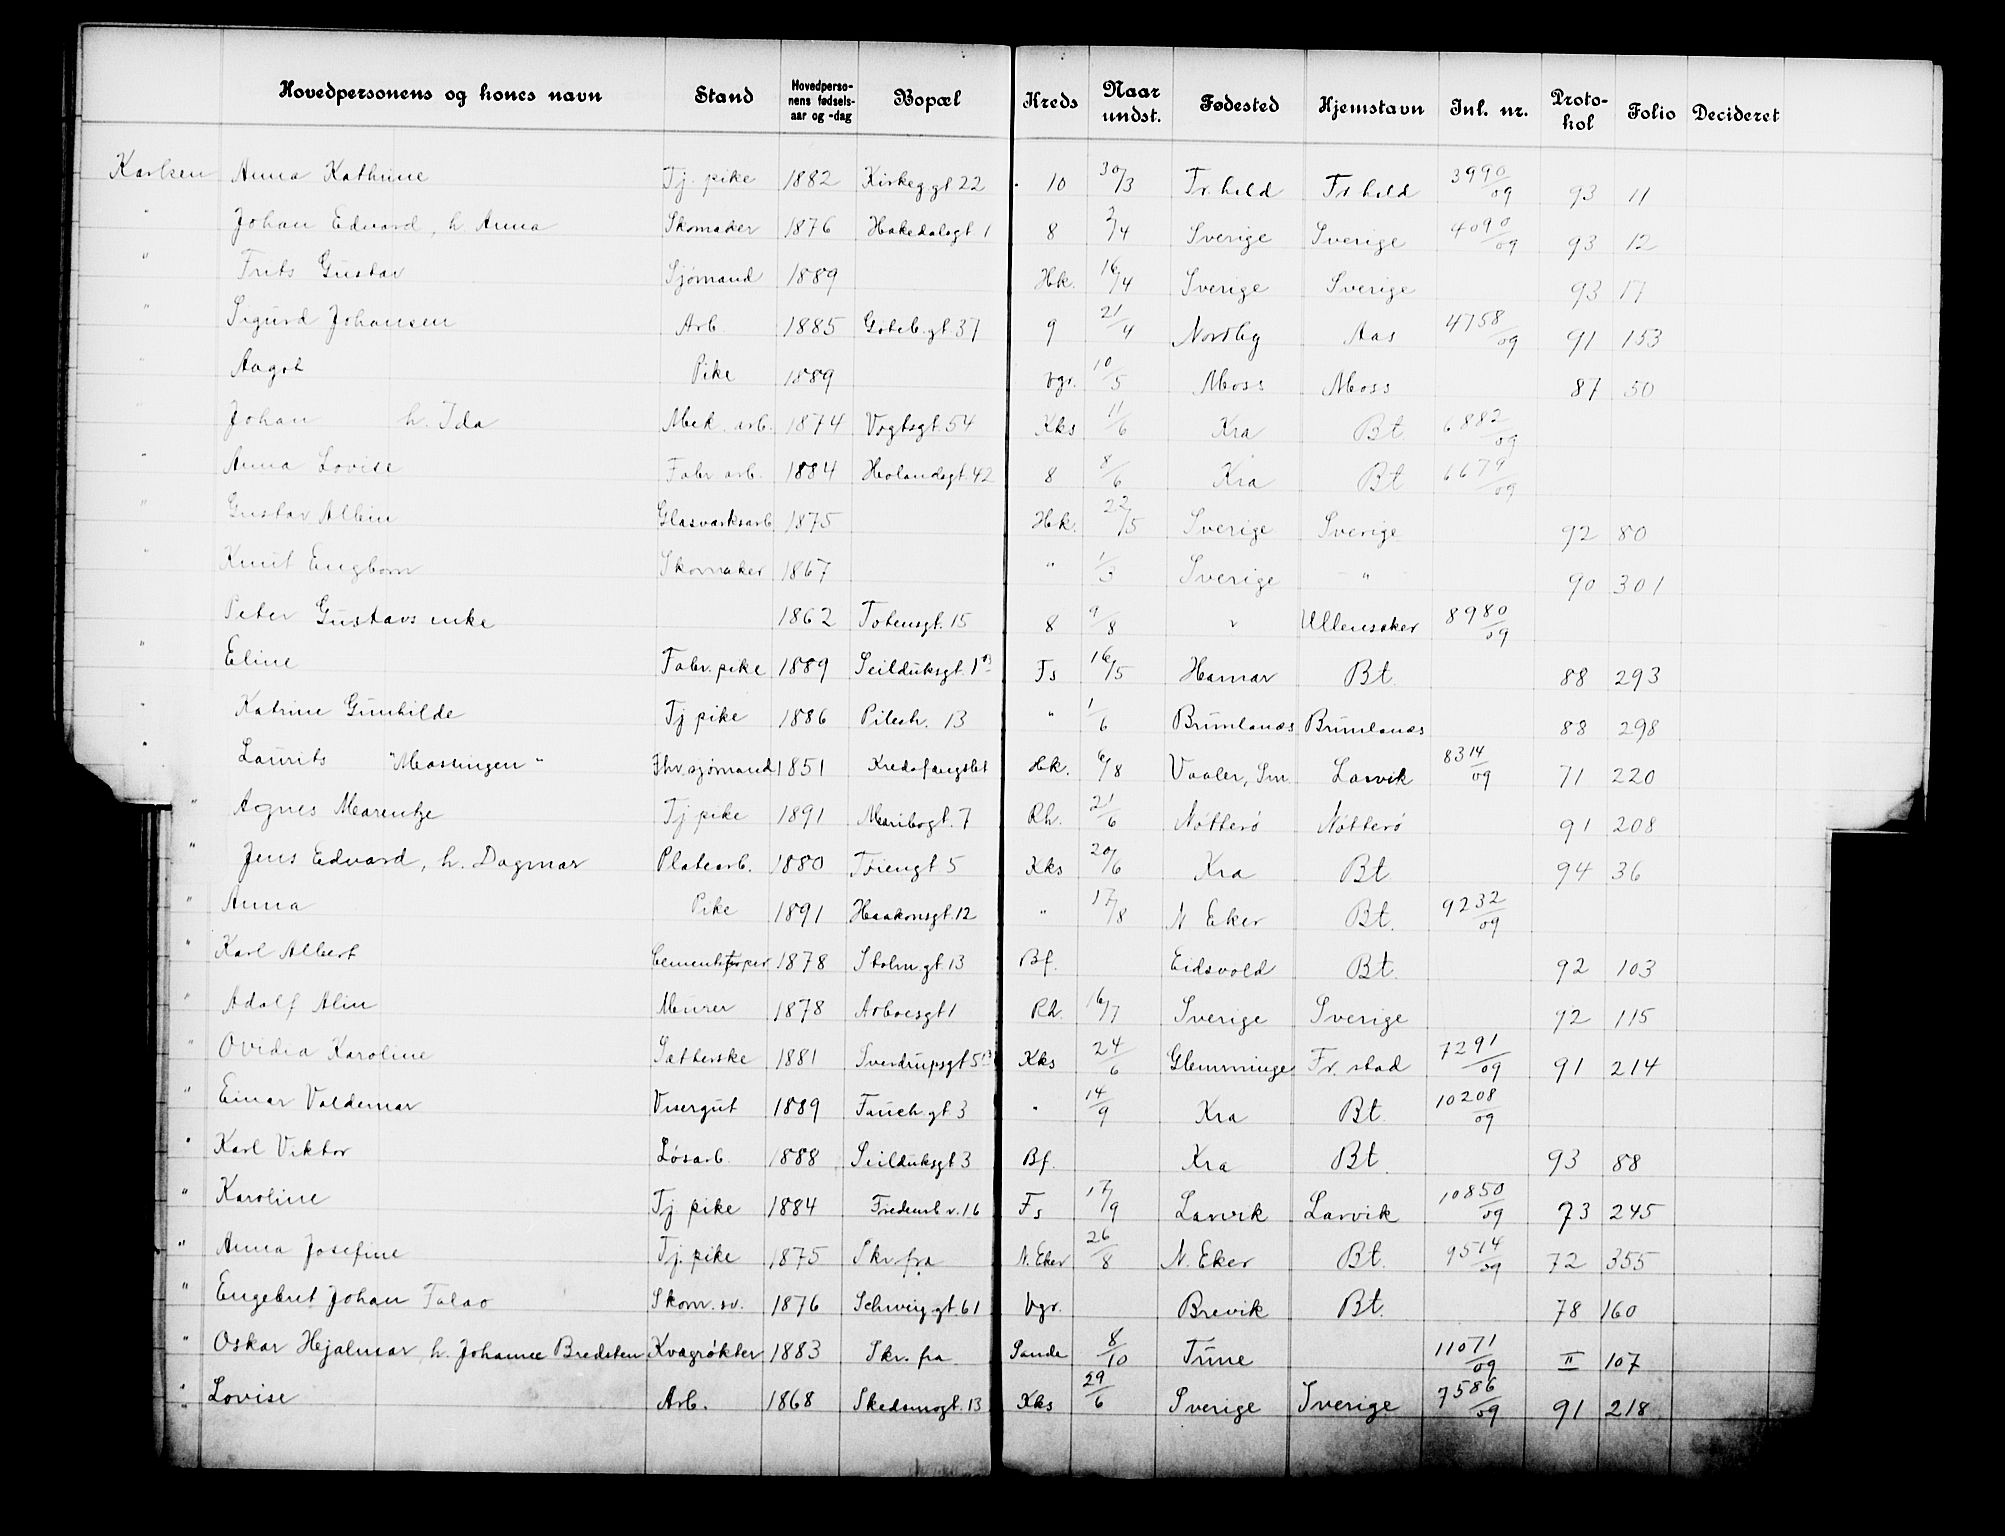 Hovedpersonens og hones navn Stand Hovedperso-nens fødsels-aar og -dag Bopæl Kreds Naar undst. Fødested Hjemstavn Inl. nr. Proto-kol Folio Decideret
Karlsen Anna Kathrine Tj. pike 1882 Kirkeg.gt 22 10 30/3 Fr.hald Fr hald 3990/09 93 11
" Johan Edvard, h. Anna Skomaker 1876 Hakedalsgt 1 8 2/4 Sverige Sverige 4090/09 93 12
" Frits Gustav Sjømand 1889 Hk. 16/4 Sverige Sverige 93 17
" Sigurd Johansen Arb 1885 Göteb.gt 37 9 21/4 Nordby Aas 4758/09 91 153
" Aagot Pike 1889 Vgr. 10/5 Moss Moss 87 50
" Johan h. Ida Mek. arb. 1874 Vogtsgt. 54 Kks 11/6 Kra Bt 6882/09
" Anna Lovise Fabr arb. 1884 Helandsgt. 42 8 8/6 Kra Bt 6679/09
" Gustav Albin Glasværksarb 1875 Hk. 22/5 Sverige Sverige 92 80
" Knut Engbom Skomaker 1867 " 1/3 Sverige " 90 301
Peter Gustavs enke 1862 Totensgt. 15 8 9/8 " Ullensaker 8980/09
" Eline Fabr. pike 1889 Seilduksgt. 1 B Fs 16/5 Hamar Bt. 88 293
" Katrine Gunhilde Tj pike 1886 Pilestr. 13 " 1/6 Brunlanæs Brunlanæs 88 298
" Laurits "Mastingen" Fhv. sjømand 1851 Kredsfængslet Hk. 6/8 Vaaler, Sm. Larvik 8314/09 71 220
" Agnes Marentze Tj pike 1891 Maribogt. 7 Rh. 21/6 Nøtterø Nøtterø 91 208
" Jens Edvard, h. Dagmar Platearb. 1880 Tøiengt 5 Kks 20/6 Kra Bt 94 36
" Anna Pike 1891 Haakonsgt. 12 " 17/8 N Eker Bt. 9232/09
" Karl Albert 1878 Stolm.gt. 13 Bf. Eidsvold Bt. 92 103
" Adolf Alin Murer 1878 Arboesgt 1 Rh. 16/7 Sverige Sverige 92 115
" Ovidia Karoline Sætherske 1881 Sverdrupsgt 5 B Kks 24/6 Glemminge Fr. stad 7291/09 91 214
" Einar Valdemar Visergut 1889 Fauch.gt 3 " 14/9 Kra Bt. 10208/09
" Karl Viktor Løsarb. 1888 Seilduksgt 3 Bf. Kra Bt. 93 88
" Karoline Tj pike 1884 Fredensb v. 16 Fs 17/9 Larvik Larvik 10850/09 73 245
" Anna Josefine Tj. pike 1875 Skr. fra N. Eker 26/8 N. Eker Bt. 9514/09 72 355
" Engebret Johan Falao Skom. sv. 1876 Schweig.gt. 61 Vgr. Brevik Bt. 78 160
" Oskar Hjalmar, h. Johanne Bredsten Kvægrøkter 1883 Skr. fra Sande 8/10 Tune 11071/09 II 107
" Lovise Arb. 1868 Skedsmogt. 13 Kks 29/6 Sverige Sverige 7586/09 91 218